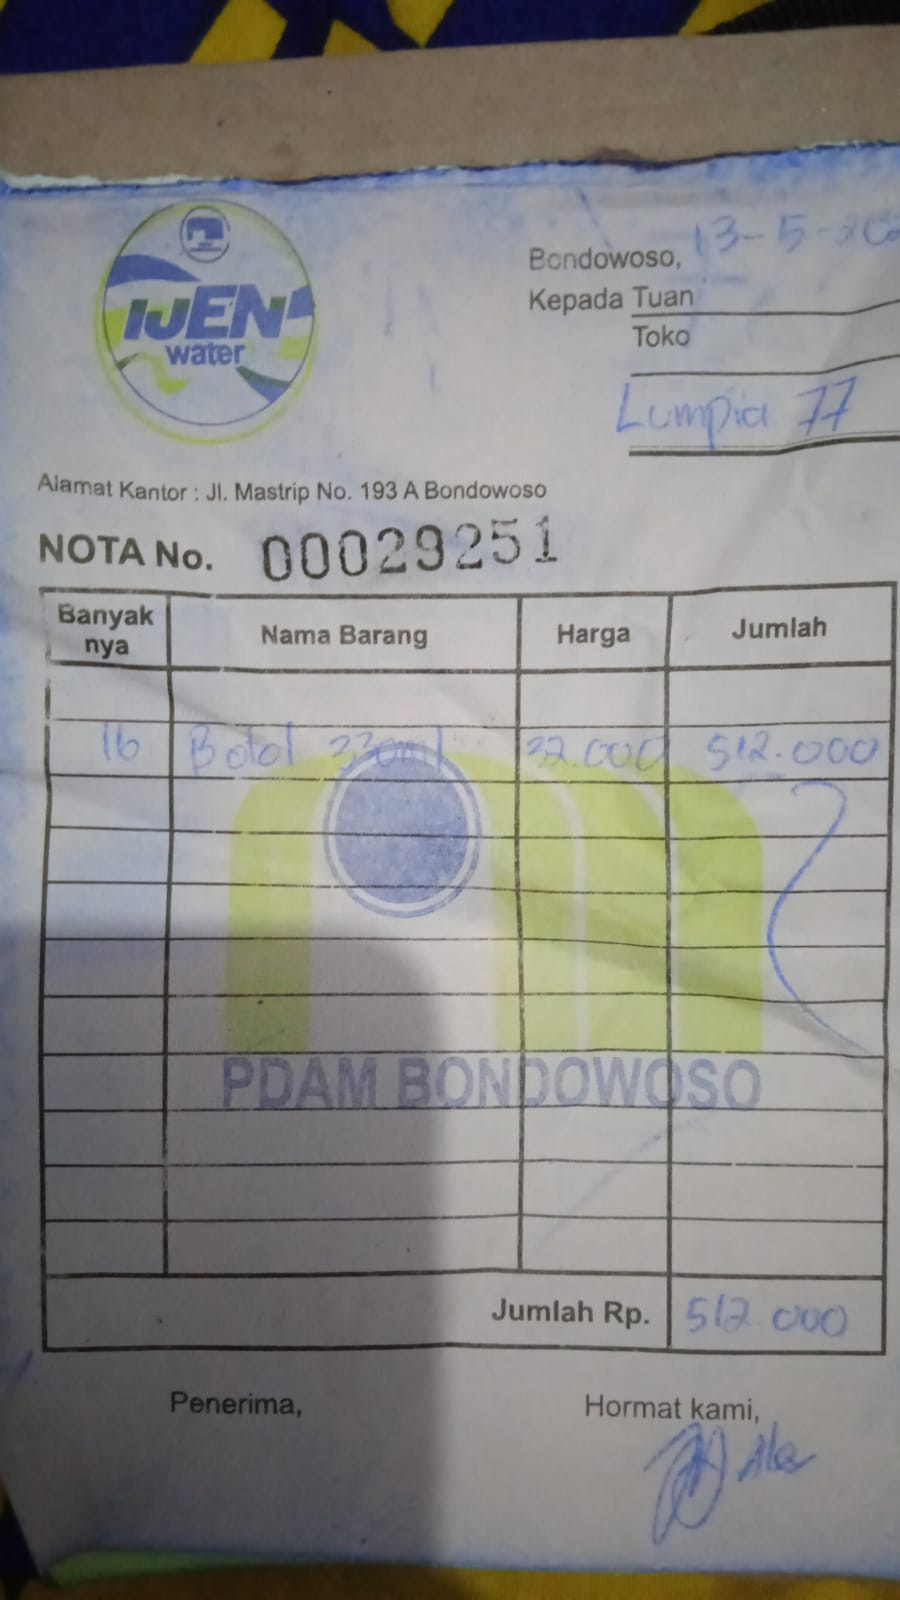 IJEN
water
Bondowoso, 13-5-20
Kepada Tuan
Toko
Lumpia 77
Alamat Kantor : Jl. Mastrip No. 193 A Bondowoso
NOTA No. 00029251
Banyak nya Nama Barang Harga Jumlah
16 Botol 330ml 32.000 512.000
PDAM BONDOWOSO
Jumlah Rp. 512.000
Penerima, Hormat kami,